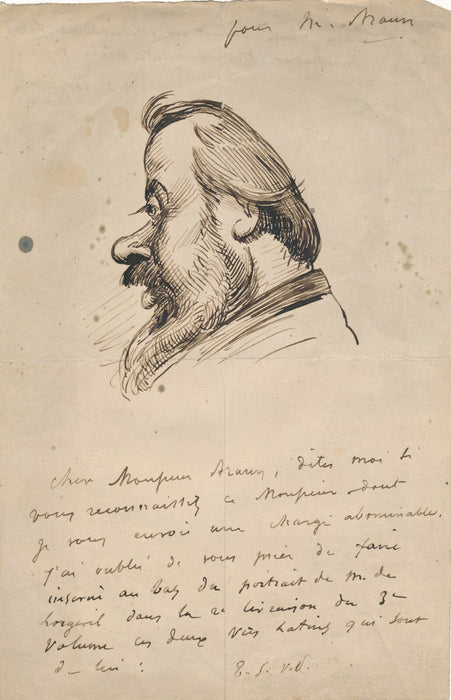 pour M. Braun
cher Monsieur Braun, dites moi si
vous reconnaissez ce Monsieur dont
je vous envoie une charge abominable.
j'ai oublié de vous prier de faire
inserer au bas du portrait de M. de
Lorgeril dans la 2e livraison du 3e
volume ces deux vers latins qui sont
de lui : T. S. V. P.